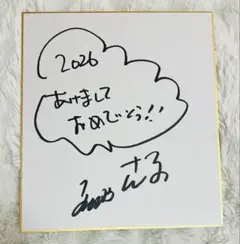 2026
あけまして
おめでとう!!